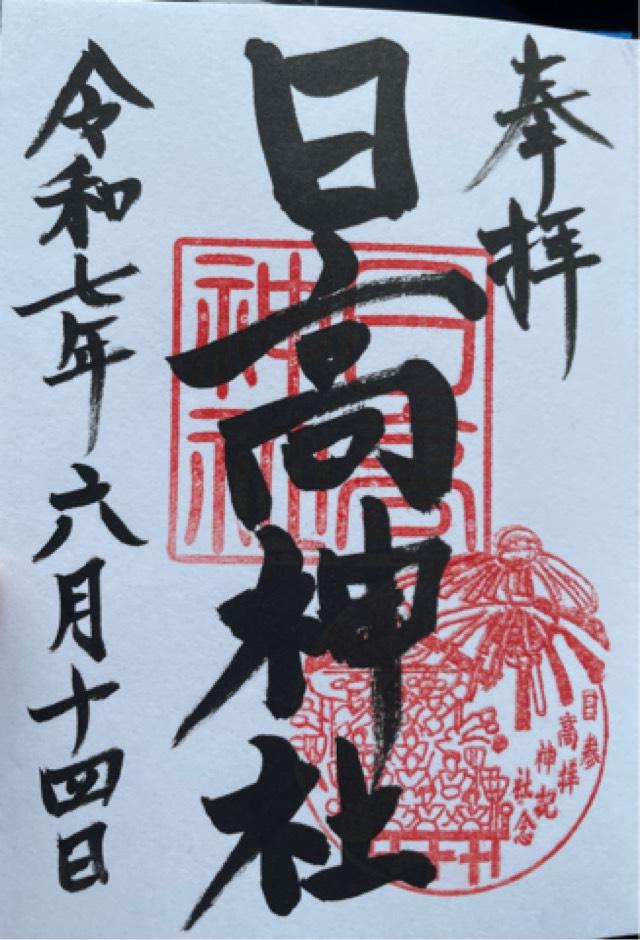 奉拝
日高神社
日高
神社
参拝記念
日高神社
令和七年六月十四日